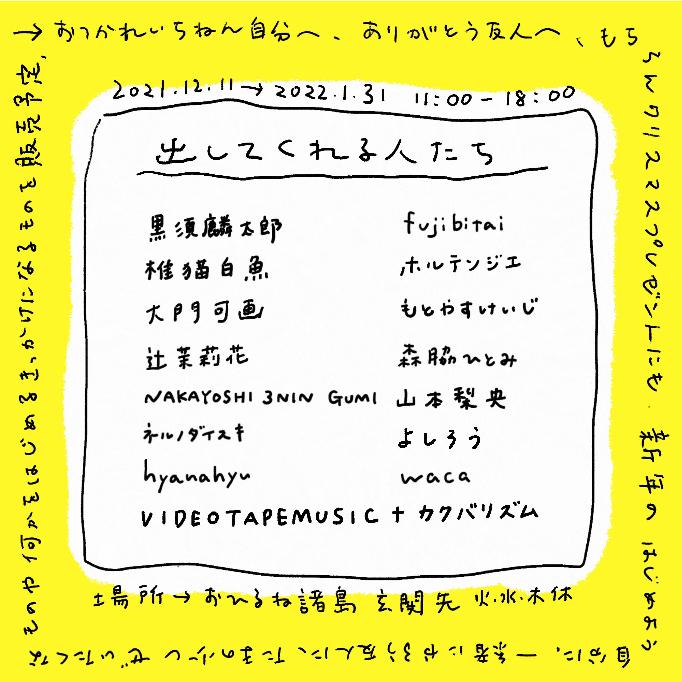 → おつかれいちねん自分へ、ありがとう友人へ、もち
ろんクリスマスプレゼントにも. 新年の はじめよう
自分に、一緒にやろう友人に、たまの少しぜいたくな
ものや何かをはじめるきっかけになるものを販売予定.
2021.12.11 → 2022.1.31 11:00 - 18:00
出してくれる人たち
黒須麟太郎 fujibitai
椎猫白魚 ホルテンジエ
大門可画 もとやすけいじ
辻茉莉花 森脇ひとみ
NAKAYOSHI 3NIN GUMI 山本梨央
ネルノダイスキ よしろう
hyanahyu waca
VIDEOTAPEMUSIC + カクバリズム
場所 → おひるね諸島 玄関先 火.水.木休